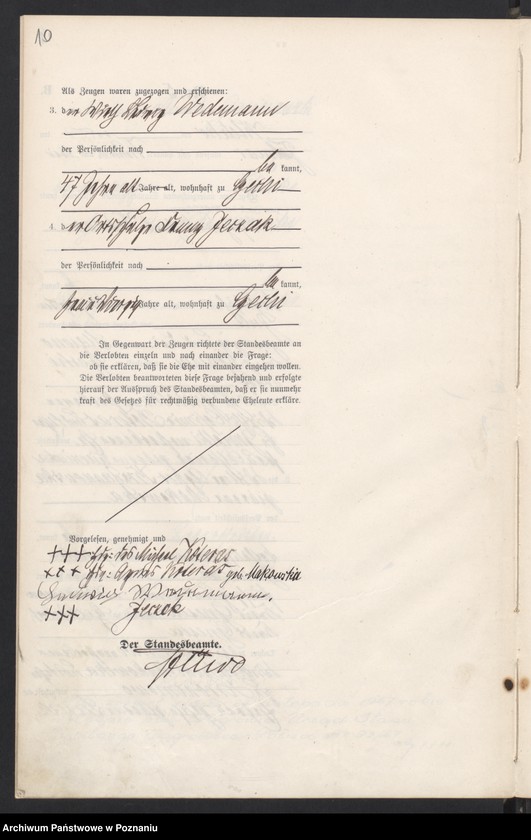 10
Als Zeugen waren zugezogen und erschienen:
3. der Wirth Ludwig Wedemann
der Persönlichkeit nach
be kannt,
47 Jahre alt Jahre alt, wohnhaft zu
4. der Franz Jerzak
der Persönlichkeit nach
be kannt,
Jahre alt, wohnhaft zu
In Gegenwart der Zeugen richtete der Standesbeamte an
die Verlobten einzeln und nach einander die Frage:
ob sie erklären, daß sie die Ehe mit einander eingehen wollen.
Die Verlobten beantworteten diese Frage bejahend und erfolgte
hierauf der Ausspruch des Standesbeamten, daß er sie nunmehr
kraft des Gesetzes für rechtmäßig verbundene Eheleute erkläre.
Vorgelesen, genehmigt und
+++ des Michael Koteras
+++ Agnes Koteras geb. Makowska
+++ Jerzak
Der Standesbeamte.
Archiwum Państwowe w Poznaniu